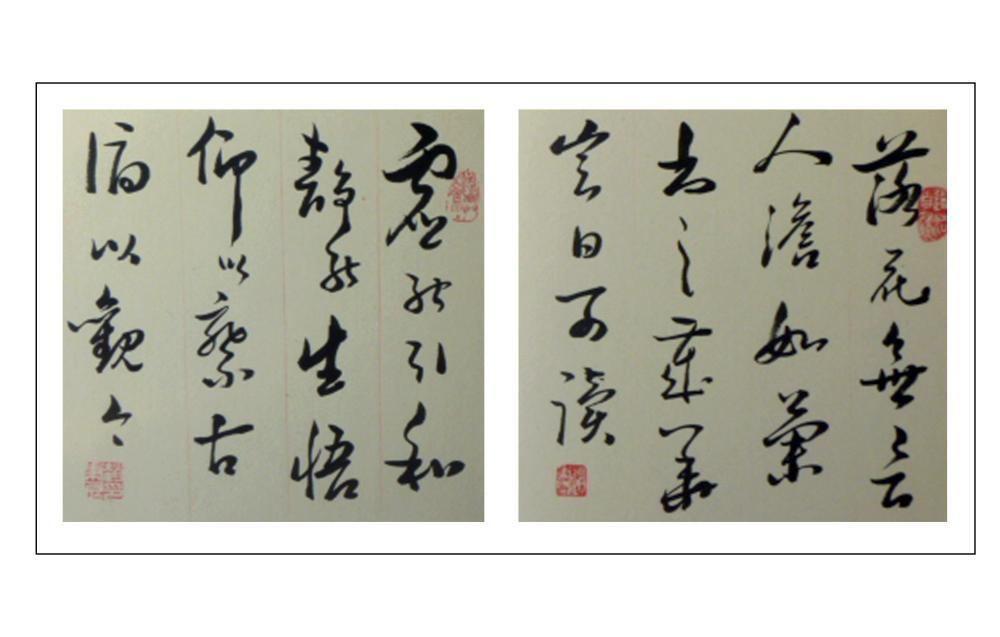 落花無言
人澹如菊
書之歲華
其曰可讀
虛能引和
靜能生悟
仰以察古
俯以觀今